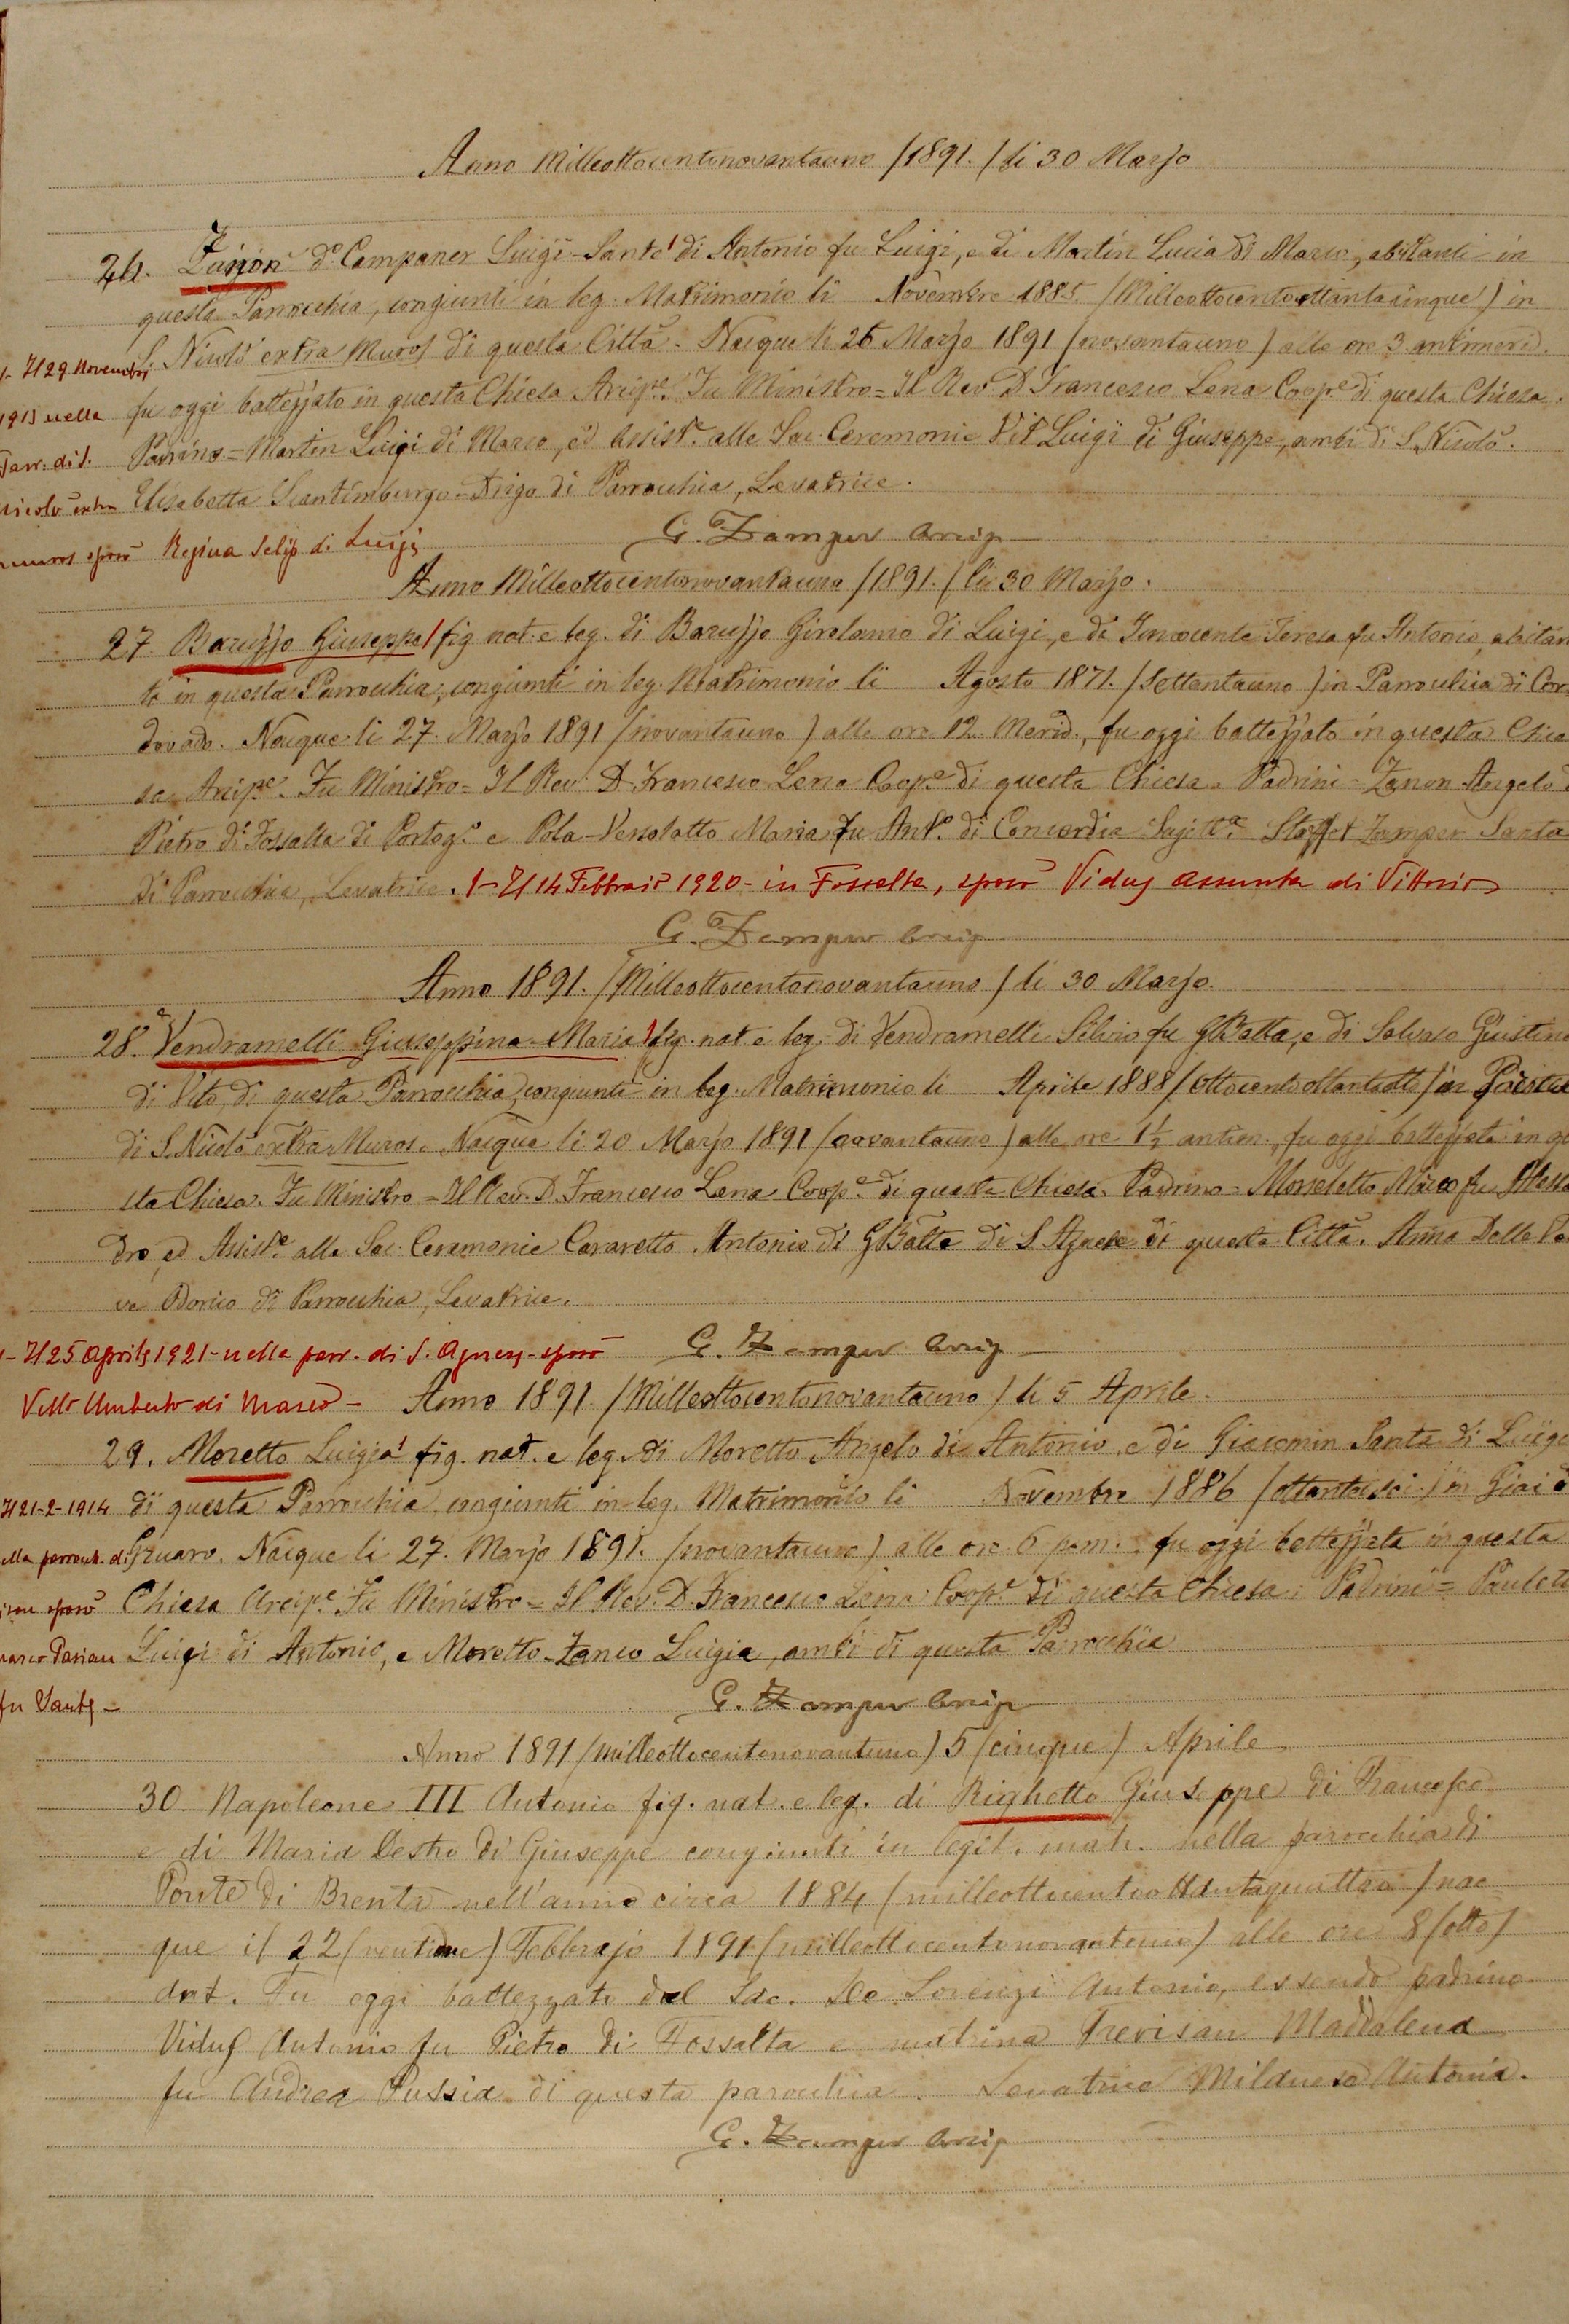 Anno Milleottocentonovantauno /1891./ li 30 Marzo
26. Zanon d.o Campaner Luigi-Sante di Antonio fu Luigi, e di Martin Lucia di Marco, abitanti in
questa Parrocchia, congiunti in leg. Matrimonio li Novembre 1885 /Milleottocentoottantacinque/ in
S. Nicolò extra Muros di questa Città. Nacque li 26 Marzo 1891 /novantauno/ alle ore 3 antimerid.
1- Il 29 Novembre
fu oggi battezzato in questa Chiesa Arcip.e Fu Ministro = Il Rev. D. Francesco Lena Coop.e di questa Chiesa.
1913 nella
Padrino = Martin Luigi di Marco, ed Assist.e alle Sac. Ceremonie Vit Luigi di Giuseppe, ambi di S. Nicolò.
Parr. di S.
Elisabetta Scantimburgo-Drigo di Parrocchia, Levatrice.
Nicolò extra
muros sposò Regina Selip di Luigi
G. Zamper Arcip
Anno Milleottocentonovantauno /1891./ li 30 Marzo.
27 Baruzzo Giuseppe fig. nat. e leg. di Baruzzo Girolamo di Luigi, e di Innocente Teresa fu Antonio, abitan
ti in questa Parrocchia, congiunti in leg. Matrimonio li Agosto 1871. /Settantauno/ in Parrocchia di Cor-
dovado. Nacque li 27. Marzo 1891 /novantauno/ alle ore 12 Merid., fu oggi battezzato in questa Chie
sa Arcip.e Fu Ministro = Il Rev. D. Francesco Lena Coop.e di questa Chiesa. Padrini = Zanon Angelo
Pietro di Fossalta di Portog.o e Pola-Versolatto Maria fu Ant.o di Concordia Sagitt.a Zamper Santa
di Parrocchia, Levatrice. 1- Il 14 Febbraio 1920- in Fossalta, sposò Vidus Assunta di Vittorio
G. Zamper Arcip
Anno 1891. /Milleottocentonovantauno/ li 30 Marzo.
28. Vendramelli Giuseppina-Maria fig. nat. e leg. di Vendramelli Silvio fu GBatta, e di Salvaro Giustina
di Vito, di questa Parrocchia, congiunti in leg. Matrimonio li Aprile 1888 /ottocentoottantaotto/ in
di S. Nicolò extra Muros. Nacque li 20 Marzo 1891 /novantauno/ alle ore 1½ antim., fu oggi battezzata in que
sta Chiesa. Fu Ministro = Il Rev. D. Francesco Lena Coop.e di questa Chiesa. Padrino = Morseletto Marco fu Alessan
dro, ed Assist.e alle Sac. Ceremonie Cararetto Antonio di GBatta di S. Agnese di questa Città. Anna Dalla Pa
ve Odorico di Parrocchia, Levatrice.
1- Il 25 Aprile 1921- nella parr. di S. Agnese- sposò
G. Zamper Arcip
Umberto di Marco -
Anno 1891. /Milleottocentonovantauno/ li 5 Aprile.
29. Moretto Luigia fig. nat. e leg. di Moretto Angelo di Antonio, e di Giacomin Santa di Luigi
di questa Parrocchia, congiunti in leg. Matrimonio li Novembre 1886 /ottantasei/ in Giai di
Il 21-2-1914
Gruaro. Nacque li 27. Marzo 1891. /novantauno/ alle ore 6 pom., fu oggi battezzata in questa
nella parroch. di
Chiesa Arcip.e Fu Ministro = Il Rev. D. Francesco Lena Coop.e di questa Chiesa. Padrini =
sposò
Luigi di Antonio, e Moretto-Zanco Luigia, ambi di questa Parrocchia
Marco Parian
fu Sante -
G. Zamper Arcip
Anno 1891 /milleottocentonovantuno/ 5 /cinque/ Aprile
30 Napoleone III Antonio fig. nat. e leg. di Righetto Giuseppe di Francesco
e di Maria Destro di Giuseppe congiunti in legit. matr. nella parocchia di
Ponte di Brenta nell'anno circa 1884 /milleottocentoottantaquattro/ nac-
que il 22 /ventidue/ Febbrajo 1891 /milleottocentonovantuno/ alle ore 8 /otto/
ant. Fu oggi battezzato dal Sac. De Lorenzi Antonio, essendo padrino
Vidus Antonio fu Pietro di Fossalta e matrina Trevisan Maddalena
fu Andrea Pussia di questa parocchia. Levatrice Milanese Antonia.
G. Zamper Arcip